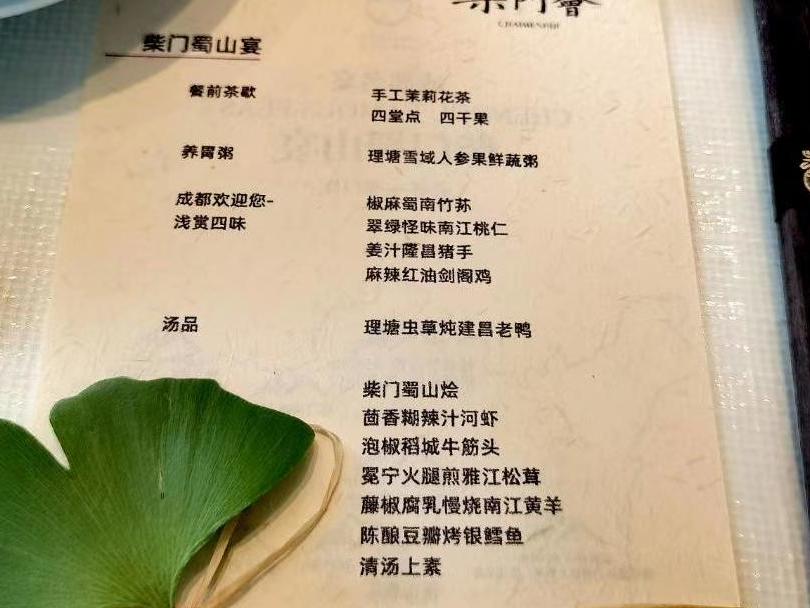 柴门荟
CHAIMENHUI
柴门蜀山宴
餐前茶歇 手工茉莉花茶
四堂点 四干果
养胃粥 理塘雪域人参果鲜蔬粥
成都欢迎您- 椒麻蜀南竹荪
浅赏四味 翠绿怪味南江桃仁
姜汁隆昌猪手
麻辣红油剑阁鸡
汤品 理塘虫草炖建昌老鸭
柴门蜀山烩
茴香糊辣汁河虾
泡椒稻城牛筋头
冕宁火腿煎雅江松茸
藤椒腐乳慢烧南江黄羊
陈酿豆瓣烤银鳕鱼
清汤上素